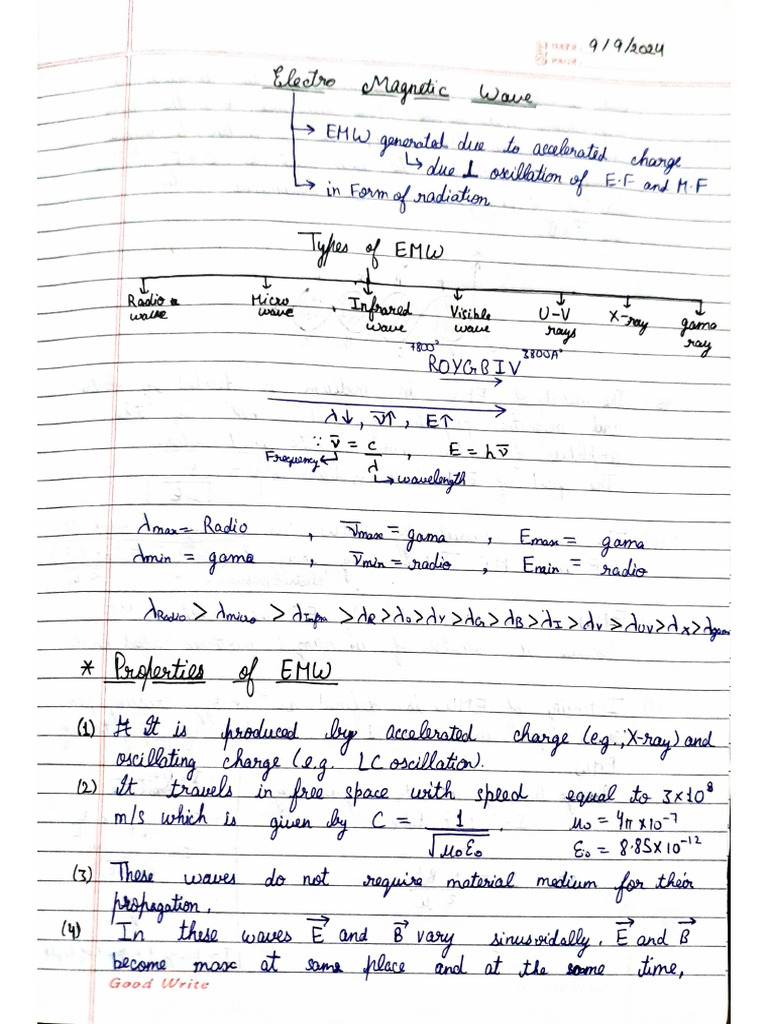 DATE: 9/9/2024
PAGE:
Electro Magnetic Wave
→ EMW generated due to accelerated charge
↳ due ⊥ oscillation of E.F and M.F
→ in Form of radiation
Types of EMW
Radio wave Micro wave Infrared wave Visible wave U-V rays X-ray gama ray
7800° 3800A°
ROYGBIV
λ↓, ν̅↑, E↑
∵ ν̅ = c/λ , E = hν̅
Frequency
wavelength
λmax = Radio , ν̅max = gama , Emax = gama
λmin = gama , ν̅min = radio , Emin = radio
λRadio > λmicro > λInfra > λR > λO > λY > λG > λB > λI > λV > λUV > λX > λgama
* Properties of EMW
(1) It is produced by accelerated charge (e.g., X-ray) and
oscillating charge (e.g. LC oscillation).
(2) It travels in free space with speed equal to 3×10⁸
m/s which is given by C = 1/√μ₀ε₀ . μ₀ = 4π×10⁻⁷
ε₀ = 8.85×10⁻¹²
(3) These waves do not require material medium for their
propagation.
(4) In these waves E⃗ and B⃗ vary sinusoidally. E⃗ and B⃗
become max at same place and at the same time,
Good Write